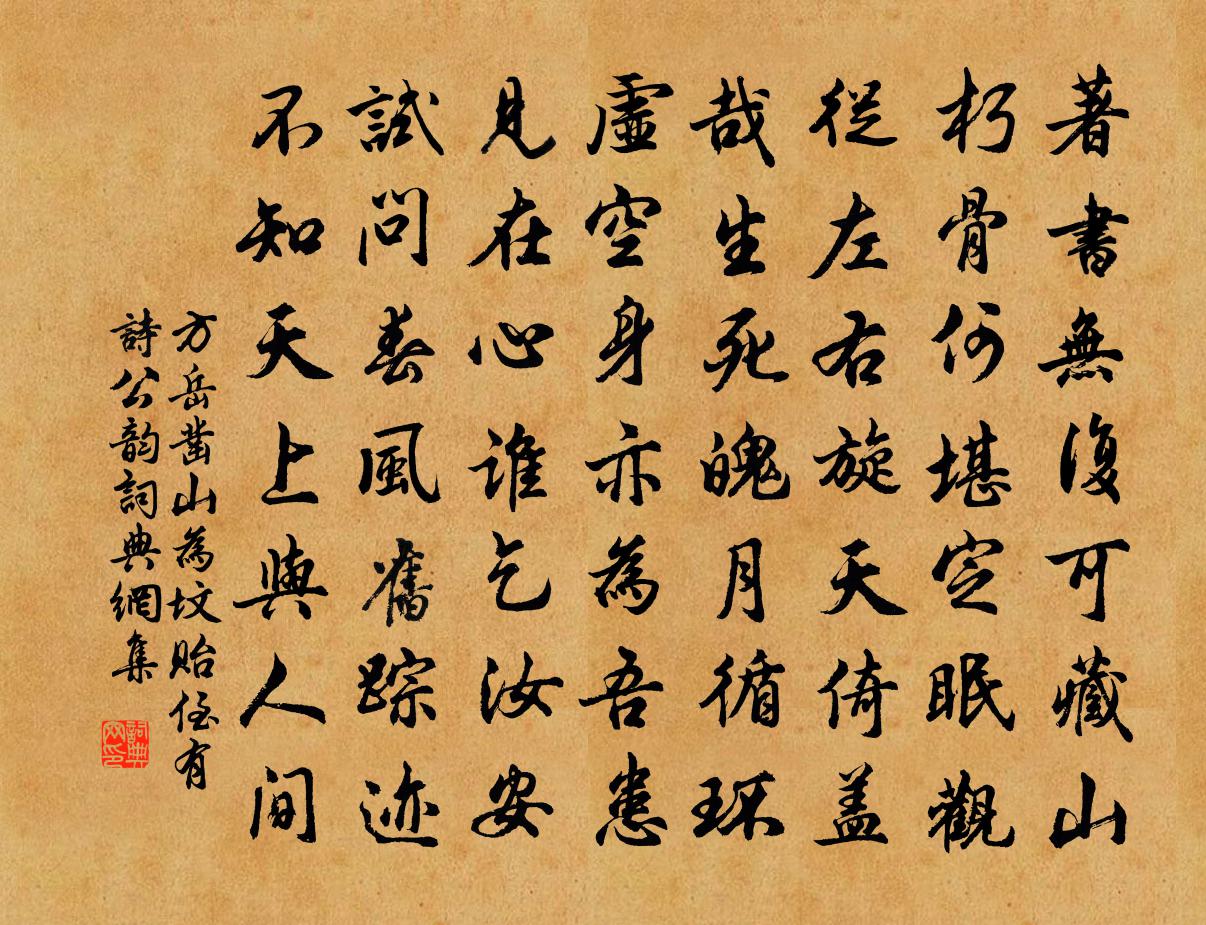 著書無復可藏山
朽骨何堪定眠觀
從左右旋天倚盖
哉生死魄月循环
虛空身亦為吾患
見在心谁乞汝安
試問春風舊踪迹
不知天上與人間
方岳凿山為坟贻侄有
詩公韵詞典網集
詞典网印